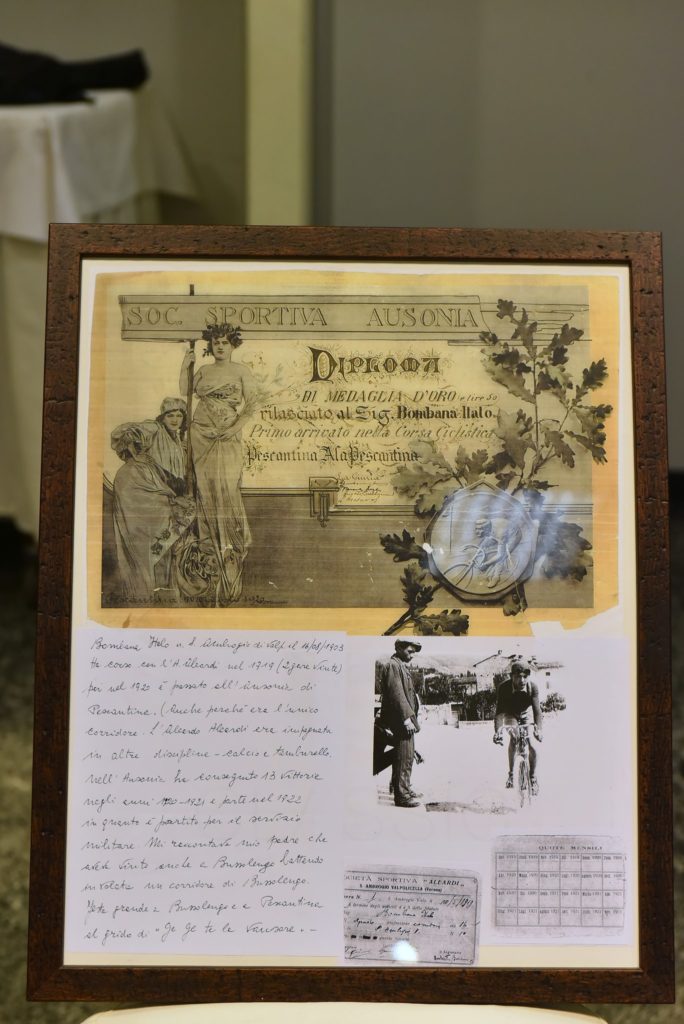 SOC. SPORTIVA AUSONIA
DIPLOMA
DI MEDAGLIA D'ORO e lire 50
rilasciato al Sig. Bombana Italo.
Primo arrivato nella Corsa Ciclistica
Pescantina Ala Pescantina
La Giuria
Pescantina 1920
Bombana Italo n. S. Ambrogio di Valp. il 16/08/1903
Ha corso con l'A. Aleardi nel 1919 (2 gare Vinte)
poi nel 1920 è passato all'Ausonia di
Pescantina. (Anche perché era l'unico
corridore. L'Aleardo Aleardi era impegnata
in altre discipline - calcio e tamburello.
Nell'Ausonia ha conseguito 13 vittorie
negli anni 1920-1921 e parte nel 1922
in quanto è partito per il servizio
militare. Mi raccontava mio padre che
aveva vinto anche a Bussolengo battendo
in volata un corridore di Bussolengo.
Festa grande a Bussolengo e a Pescantina
al grido di "Ge Ge te le
SOCIETÀ SPORTIVA "ALEARDI"
S. AMBROGIO VALPOLICELLA (Verona)
S. Ambrogio Valp. li
Bombana Italo
QUOTE MENSILI